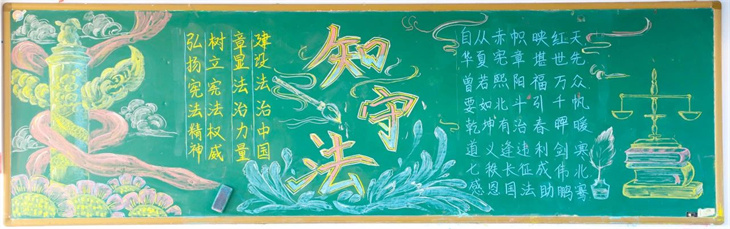 弘扬宪法精神
树立宪法权威
章显法治力量
建设法治中国
知守法
自从赤帜映红天
华夏宪章堪世先
曾若熙阳福万众
要如北斗引千帆
乾坤有治春晖暖
道义逢违利剑寒
七秩长征成伟北
感恩国法助鹏骞